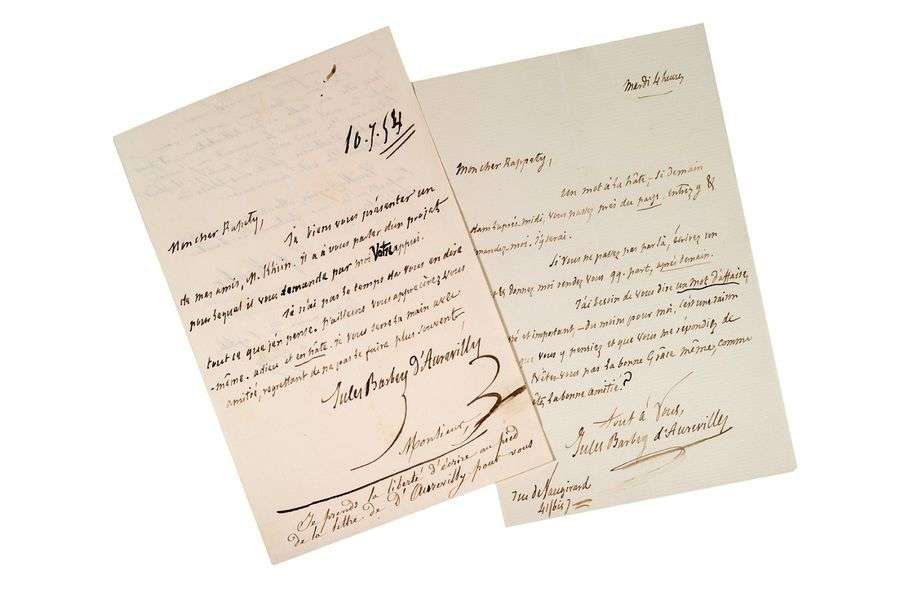 10.7.54
Mon cher Rapety,
Je viens vous présenter un
de mes amis, M. Khüin. il a à vous parler d'un projet
pour lequel il vous demande par moi Votre appui.
Je n'ai pas le temps de vous en dire
tout ce que j'en pense. D'ailleurs vous apprécierez vous
-même. adieu et en hâte. je vous serre la main avec
amitié, regrettant de ne pas le faire plus souvent.
Jules Barbey d'Aurevilly
Monsieur,
Je prends la liberté d'écrire au pied
de la lettre de D'Aurevilly pour vous
Mardi 4 heures
Mon cher Rappety,
Un mot à la hâte, – si demain
dans l'après midi, vous passez près du pays, entrez y &
mandez-moi. J'y serai.
Si vous ne passez pas par là, écrivez un
& donnez moi rendez vous qq. part, après demain.
J'ai besoin de vous dire un mot d'affaire,
et important – du moins pour moi, c'est une raison
que vous y pensiez et que vous me répondiez de
N'êtes vous pas la bonne Grâce même, comme
êtes la bonne amitié?
tout à Vous,
Jules Barbey d'Aurevilly
rue de Vaugirard